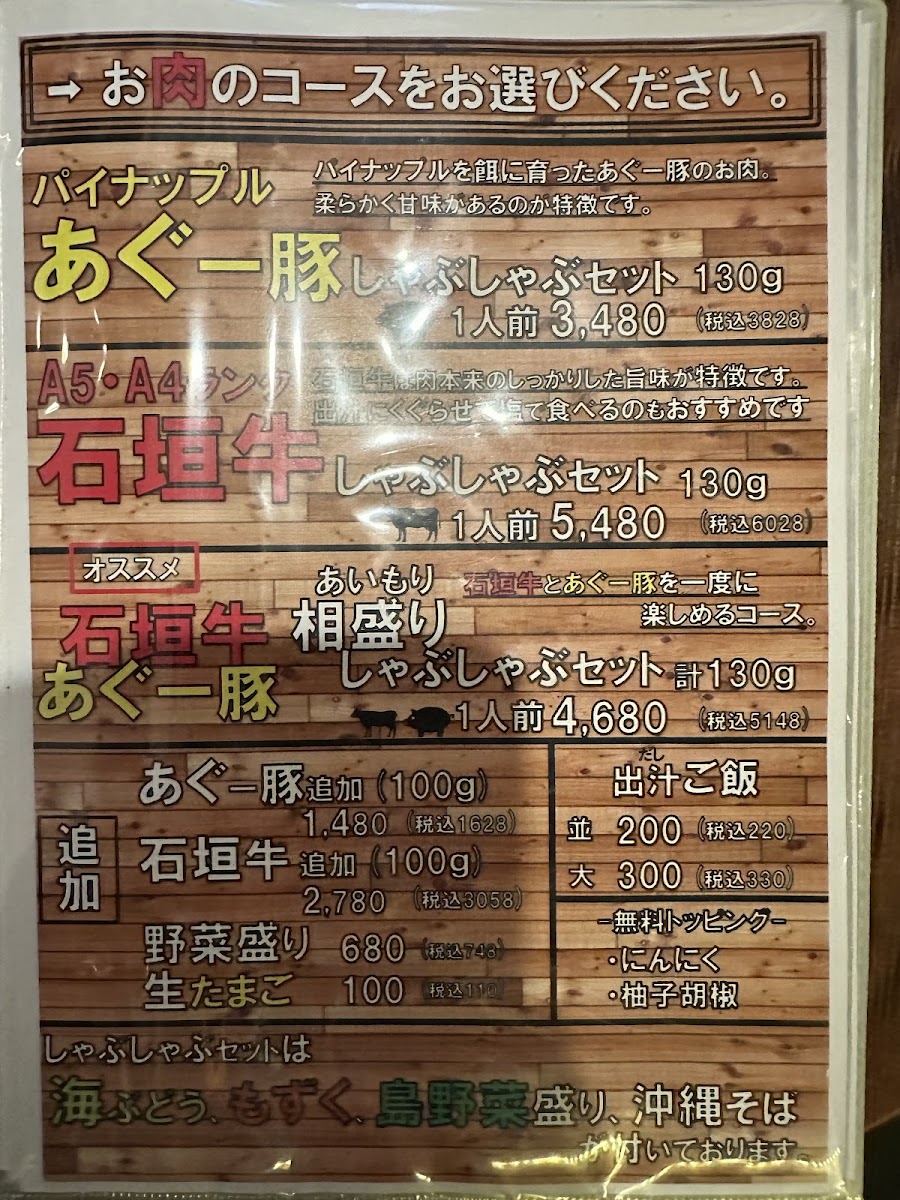 →お肉のコースをお選びください。
パイナップル
あぐー豚
パイナップルを餌に育ったあぐー豚のお肉。
柔らかく甘味があるのが特徴です。
しゃぶしゃぶセット 130g
1人前 3,480 (税込3828)
A5・A4ランク
石垣牛
石垣牛は肉本来のしっかりした旨味が特徴です。
出汁にくぐらせて塩で食べるのもおすすめです
しゃぶしゃぶセット 130g
1人前 5,480 (税込6028)
オススメ
石垣牛
あぐー豚
あいもり
相盛り
石垣牛とあぐー豚を一度に
楽しめるコース。
しゃぶしゃぶセット 計130g
1人前 4,680 (税込5148)
追加
あぐー豚追加 (100g)
1,480 (税込1628)
石垣牛 追加 (100g)
2,780 (税込3058)
野菜盛り 680 (税込748)
生たまご 100 (税込110)
だし
出汁ご飯
並 200 (税込220)
大 300 (税込330)
-無料トッピング-
・にんにく
・柚子胡椒
しゃぶしゃぶセットは
海ぶどう、もずく、島野菜盛り、沖縄そば
が付いております。